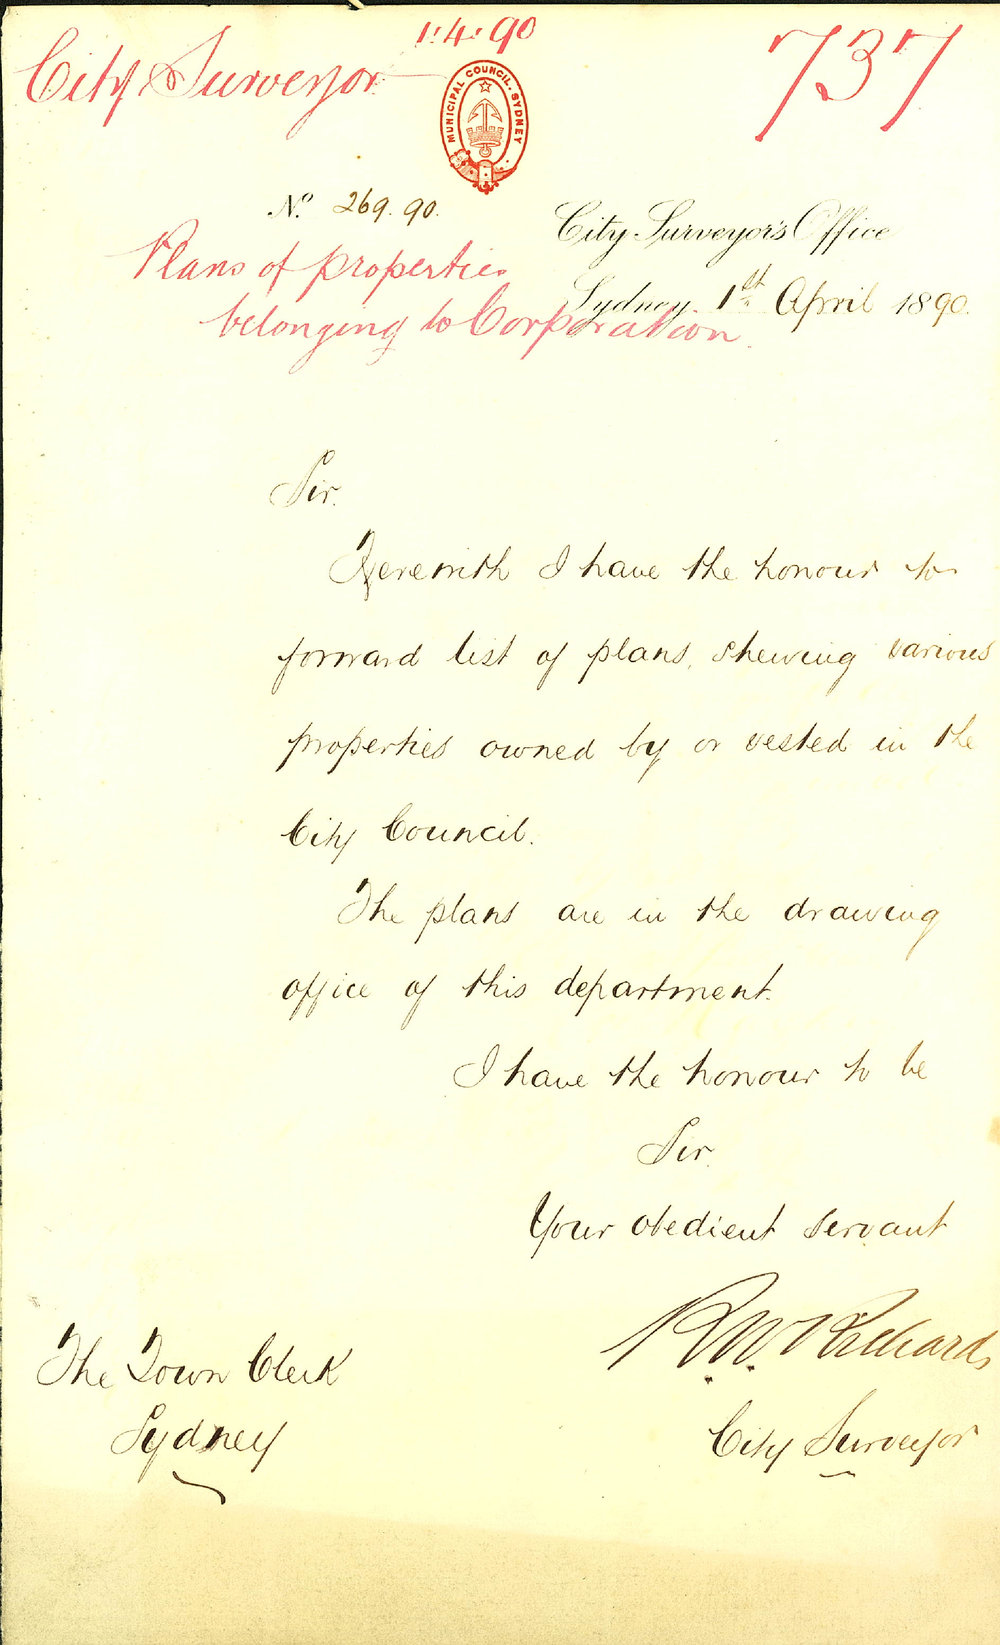 1.4.90
City Surveyor
737
MUNICIPAL COUNCIL. SYDNEY
No. 269.90.
City Surveyor's Office
Plans of properties
Sydney, 1st April 1890.
belonging to Corporation.
Sir.
Herewith I have the honour to
forward list of plans, shewing various
properties owned by or vested in the
City Council.
The plans are in the drawing
office of this department.
I have the honour to be
Sir.
Your obedient servant
R.W. Richards
The Town Clerk
City Surveyor
Sydney